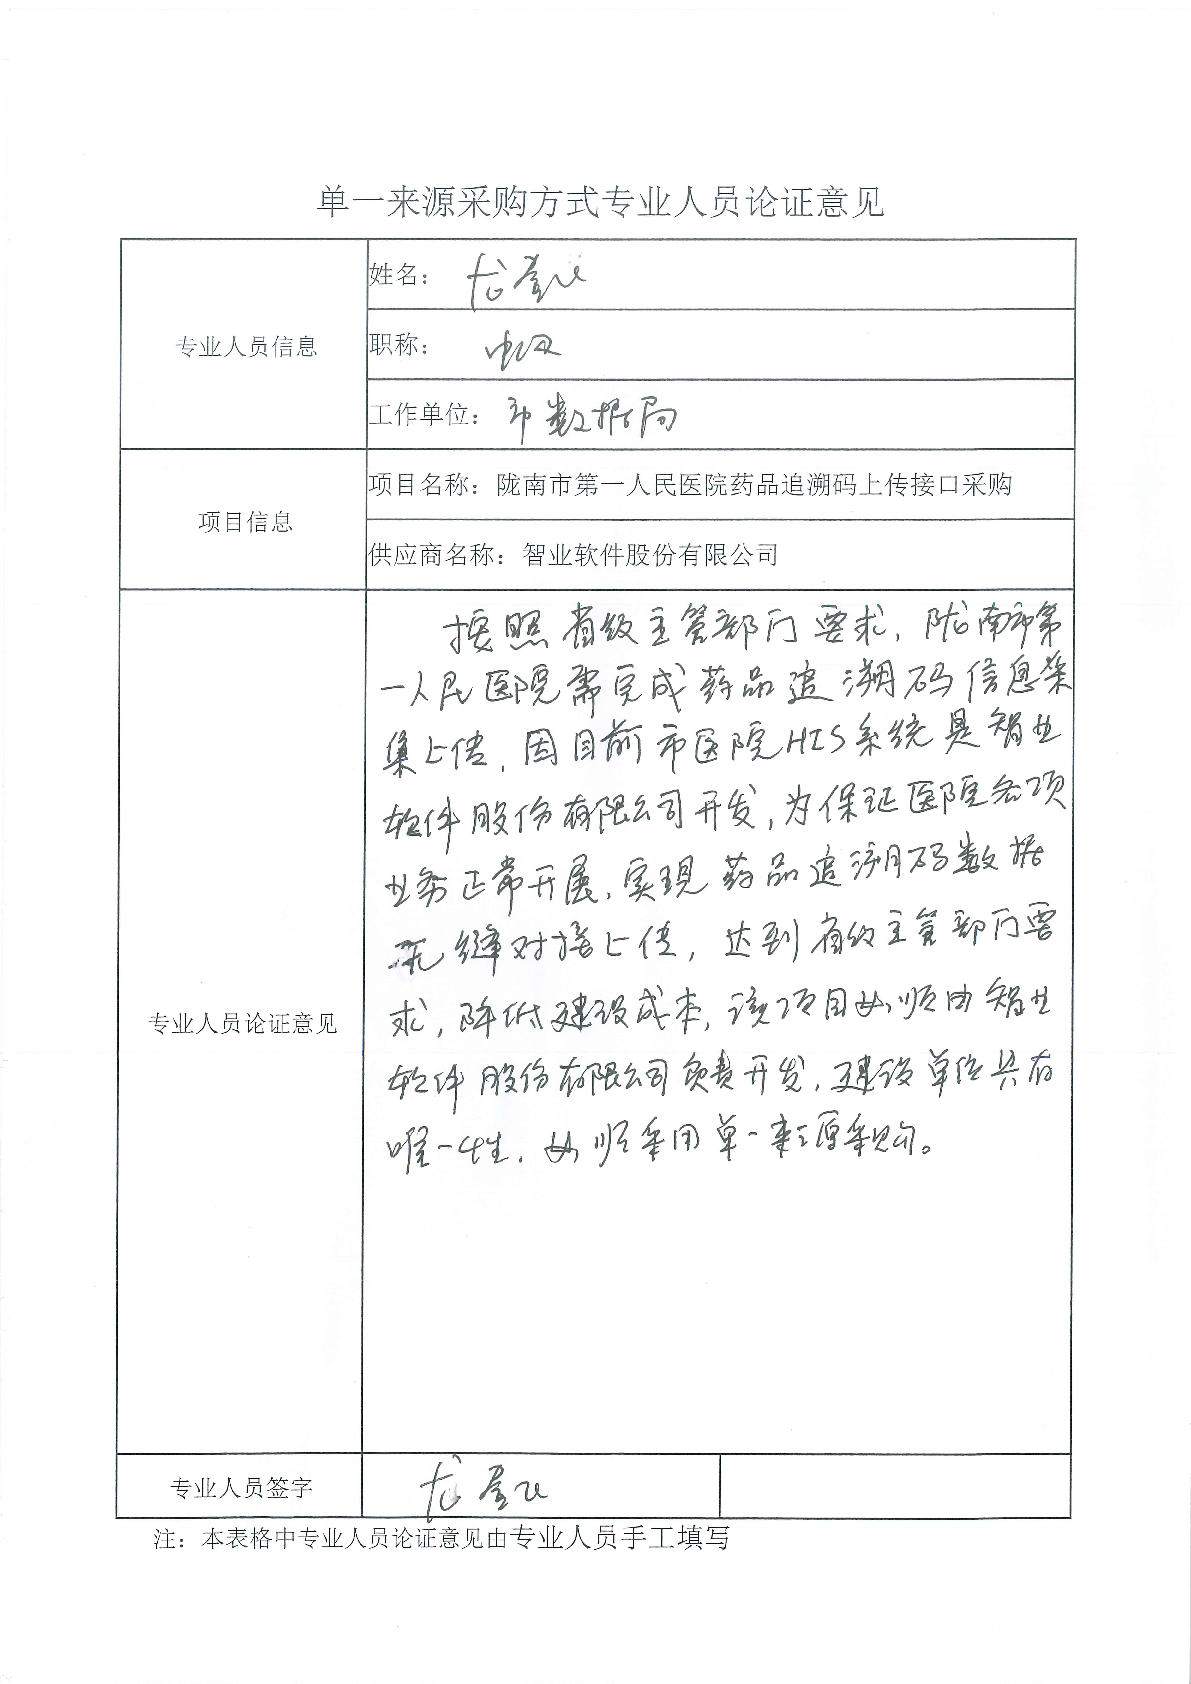 单一来源采购方式专业人员论证意见
专业人员信息
姓名：
职称： 中级
工作单位： 市数据局
项目信息
项目名称：陇南市第一人民医院药品追溯码上传接口采购
供应商名称：智业软件股份有限公司
专业人员论证意见
按照省级主管部门要求，陇南市第
一人民医院需完成药品追溯码信息采
集上传，因目前市医院HIS系统是智业
软件股份有限公司开发，为保证医院各项
业务正常开展，实现药品追溯码数据
无缝对接上传，达到省级主管部门要
求，降低建设成本，该项目必须由智业
软件股份有限公司负责开发，建设单位具有
唯一性，必须采用单一来源采购。
专业人员签字
注：本表格中专业人员论证意见由专业人员手工填写